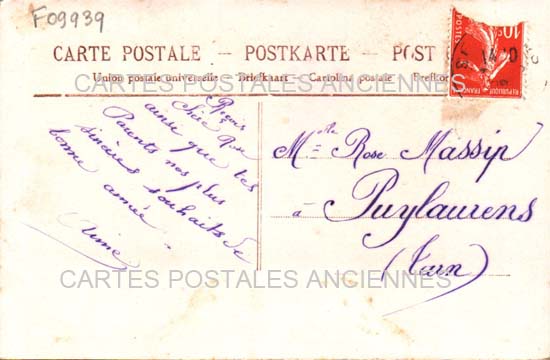 F09939
CARTE POSTALE – POSTKARTE – POST
Union postale universelle – Briefkaart – Cartolina postale – Brefkor
10c
POSTES
REPUBLIQUE FRANÇAISE
CARTES POSTALES ANCIENNES
Reçois
chère Rose
ainsi que tes
Parents nos plus
sincères souhaits de
bonne année.
Aimé
Mlle Rose Massip
à Puylaurens
(Tarn)
CARTES POSTALES ANCIENNES